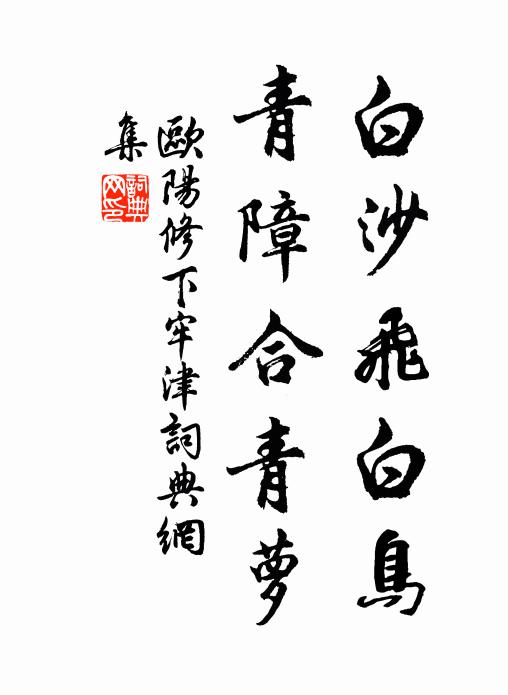 白沙飛白鳥
青障合青萝
歐陽修下牢津詞典網
集
詞典
网印